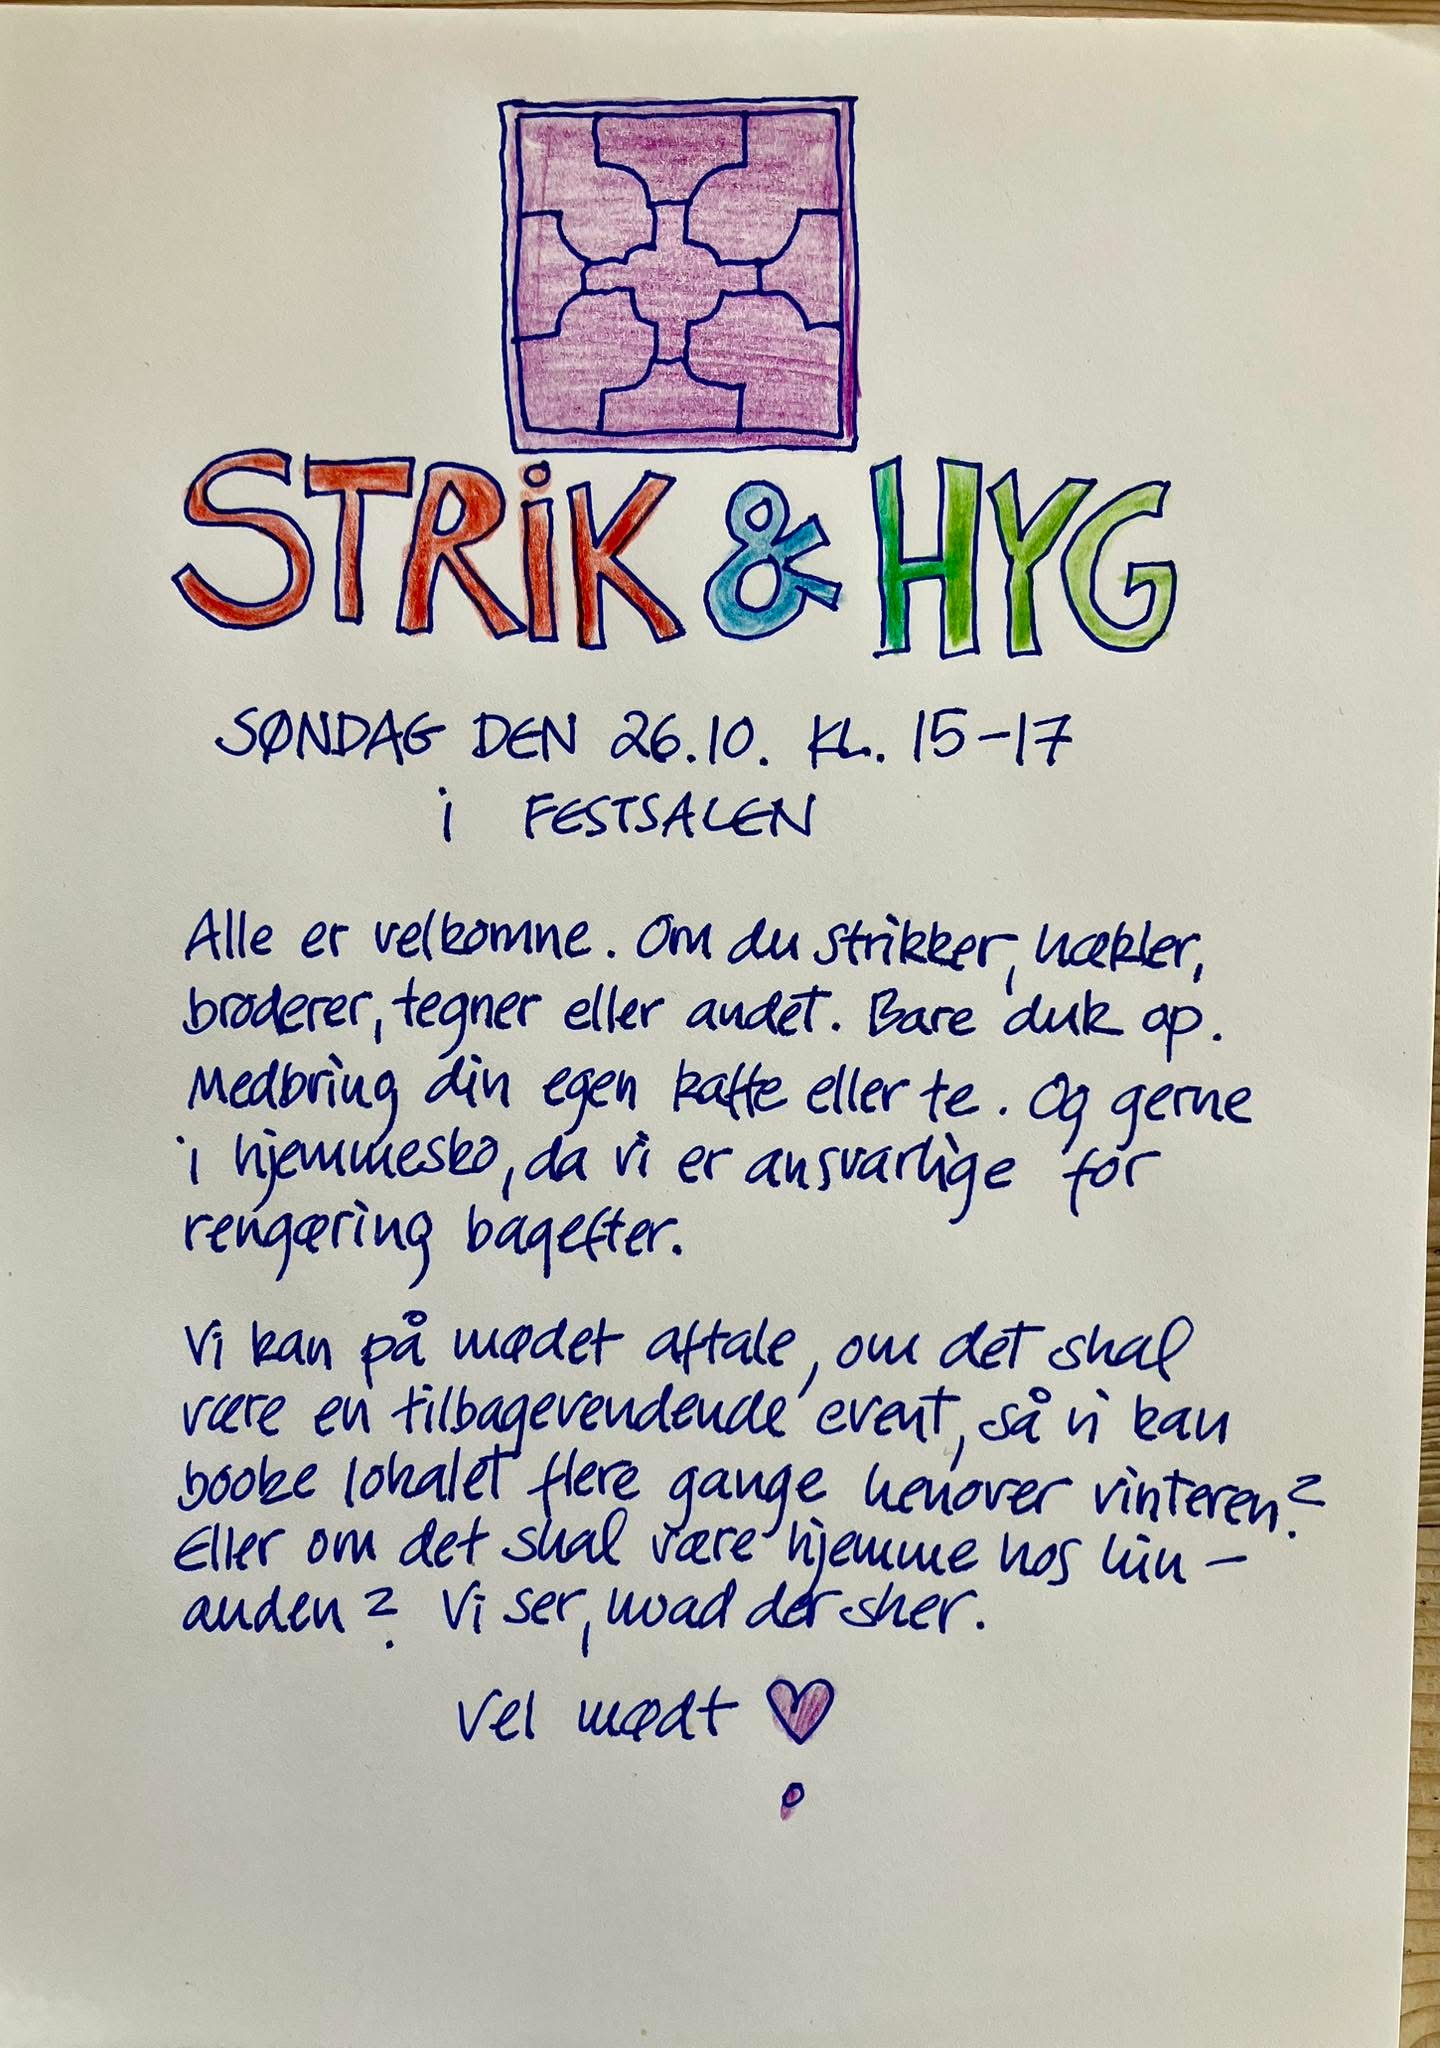 STRiK & HYG
SØNDAG DEN 26.10. KL. 15-17
i FESTSALEN
Alle er velkomne. Om du strikker, hækler,
broderer, tegner eller andet. Bare duk op.
Medbring din egen kaffe eller te. Og gerne
i hjemmesko, da vi er ansvarlige for
rengøring bagefter.
Vi kan på mødet aftale, om det skal
være en tilbagevendende event, så vi kan
booke lokalet flere gange henover vinteren?
Eller om det skal være hjemme hos hin-
anden? Vi ser, hvad der sker.
Vel mødt